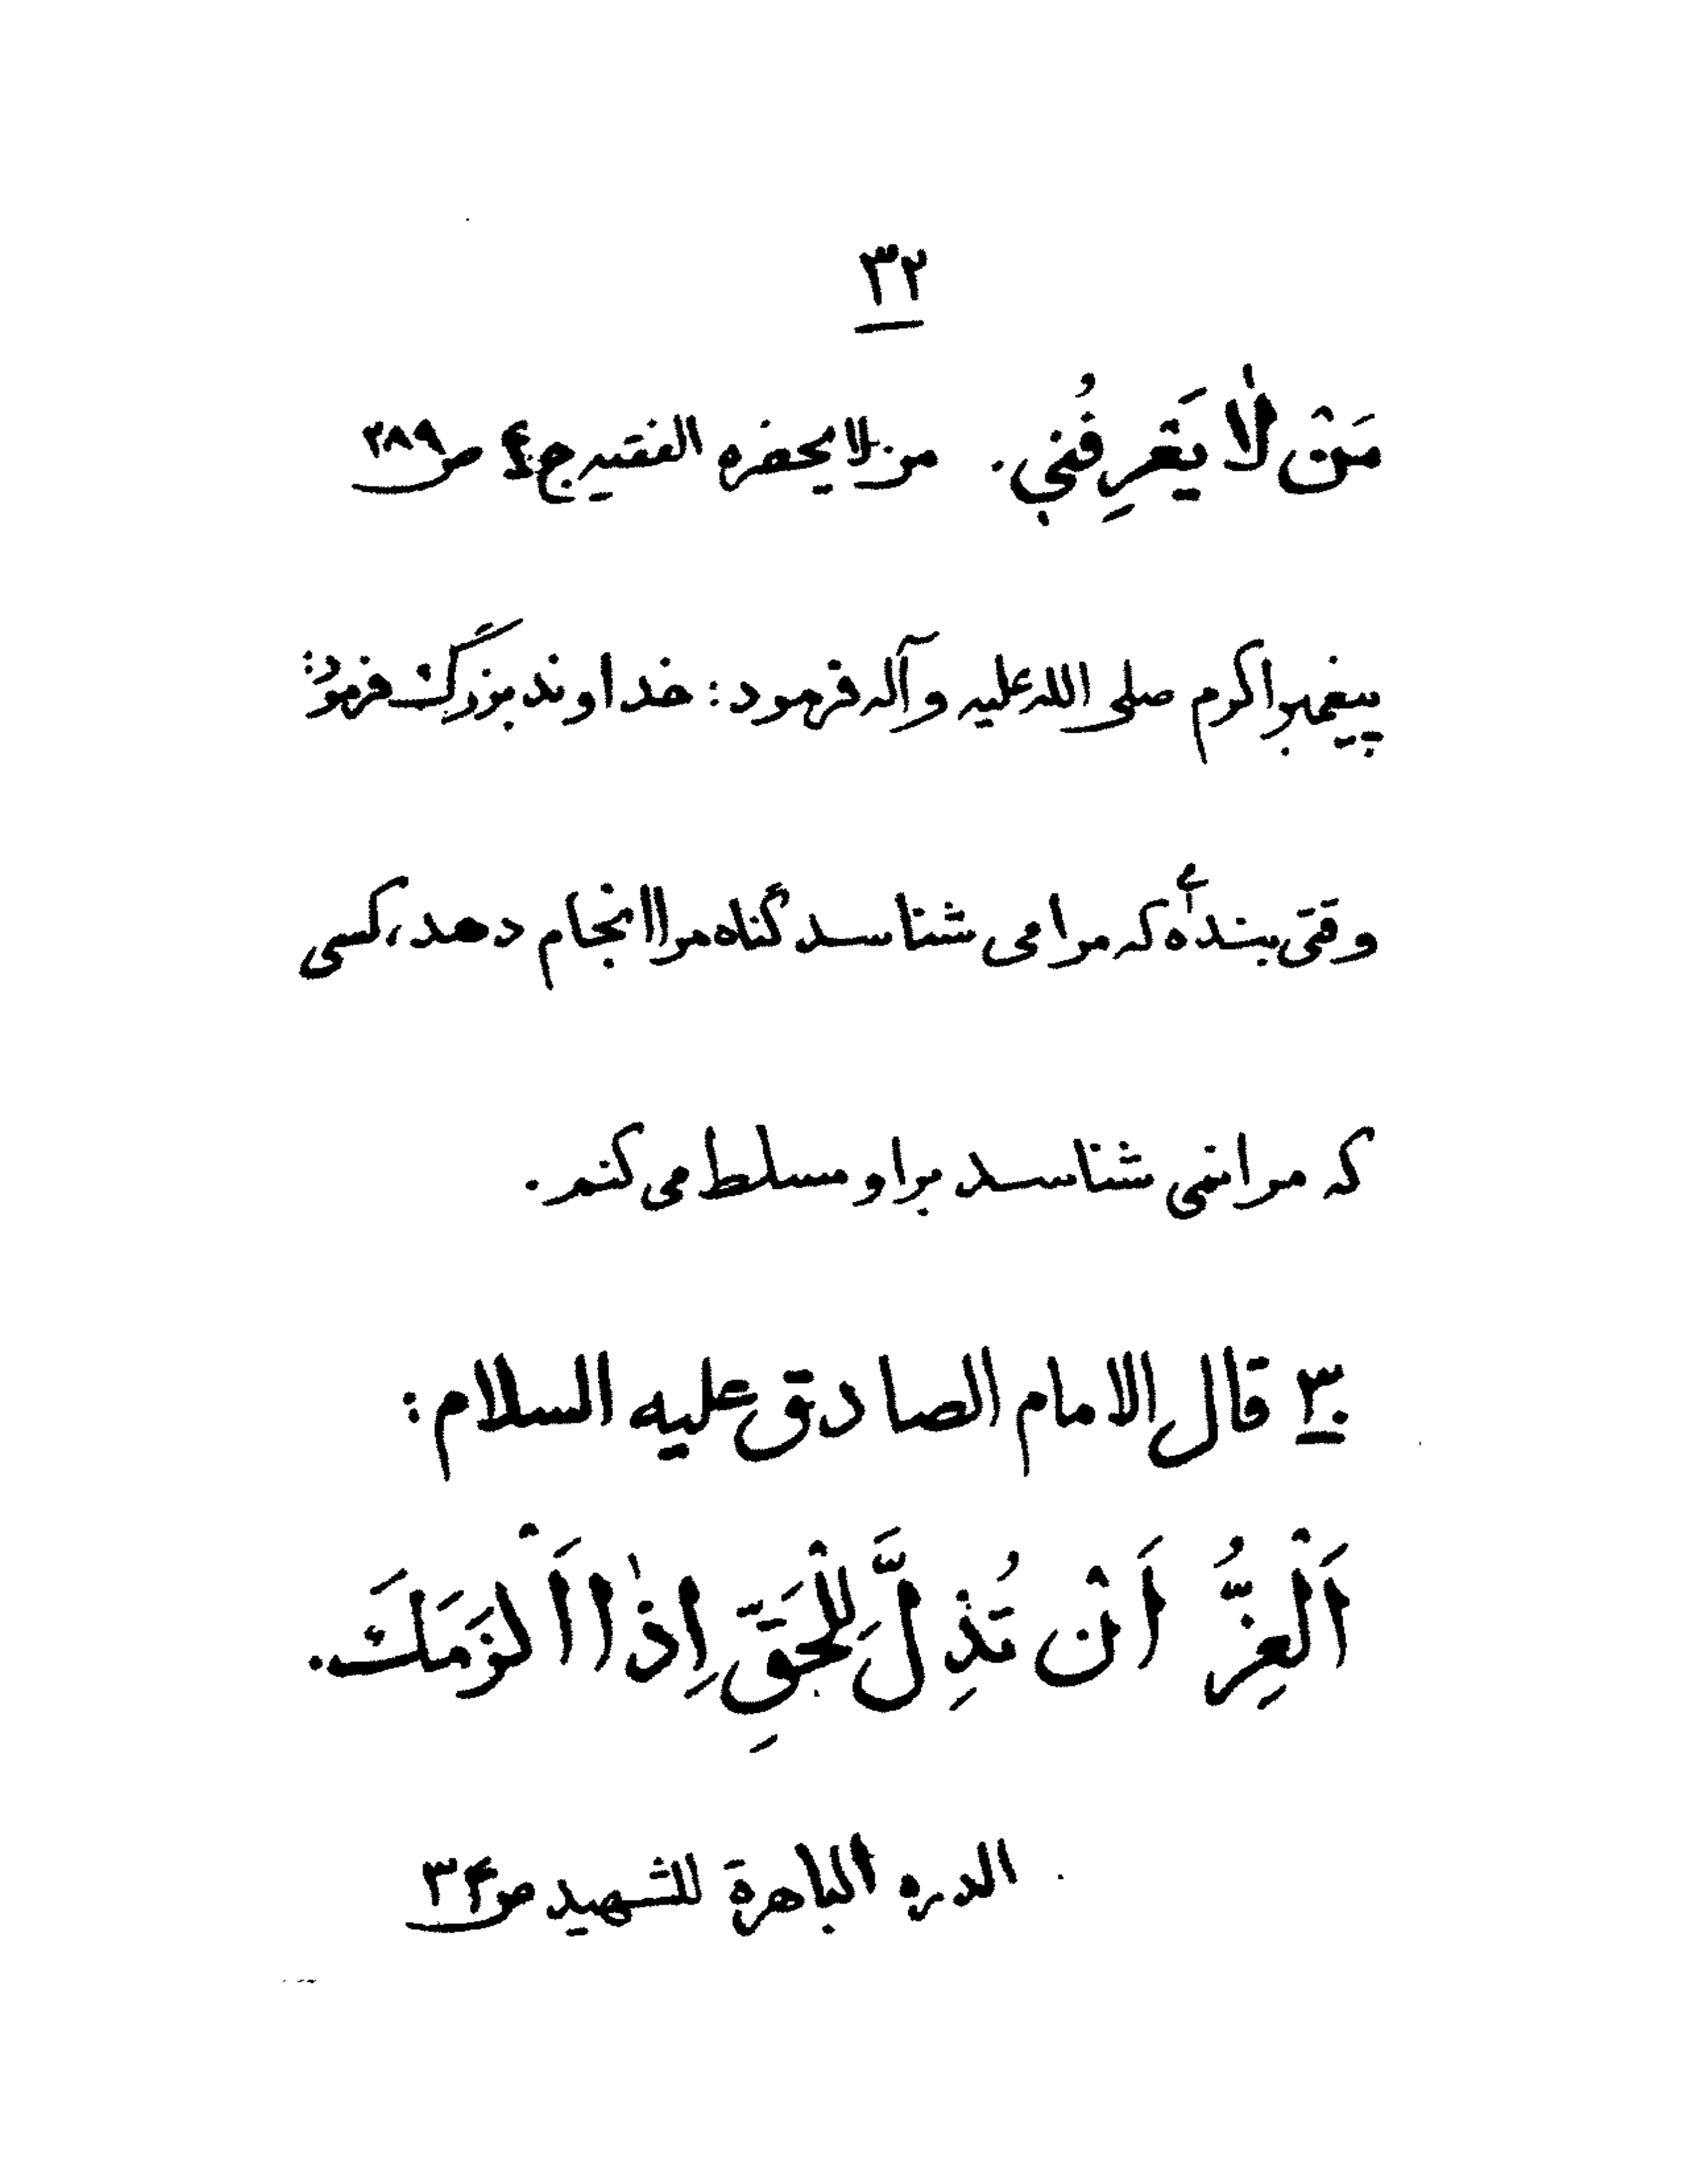 ٣٢
مَنْ لٰا يَعْرِفُني. من لا يحضره الفقيه ج٤ ص٢٨٩
پیغمبر اکرم صلی الله علیه وآله فرمود: خداوند بزرگ فرمود:
وقتی بندهٔ که مرا می شناسد گناه مرا انجام دهد، کسی
که مرا نمی شناسد بر او مسلط می کنم.
٣٠ قال الامام الصادق عليه السلام:
اَلْعِزُّ اَنْ تُذِلَّ لِلْحَقِّ اِذٰا اَلْزَمَكَ.
الدره الباهرة للشهيد ص٣۴